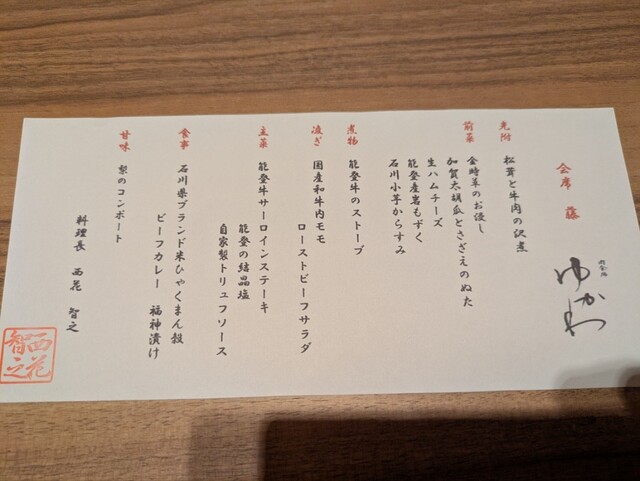 会席 藤
ゆかわ
先附
松茸と牛肉の沢煮
前菜
金時草のお浸し
加賀太胡瓜とさざえのぬた
生ハムチーズ
能登産岩もずく
石川小芋からすみ
煮物
能登牛のストーブ
凌ぎ
国産和牛内モモ
ローストビーフサラダ
主菜
能登牛サーロインステーキ
能登の結晶塩
自家製トリュフソース
食事
石川県ブランド米ひゃくまん穀
ビーフカレー 福神漬け
甘味
梨のコンポート
料理長 西花 智之
西花
智之